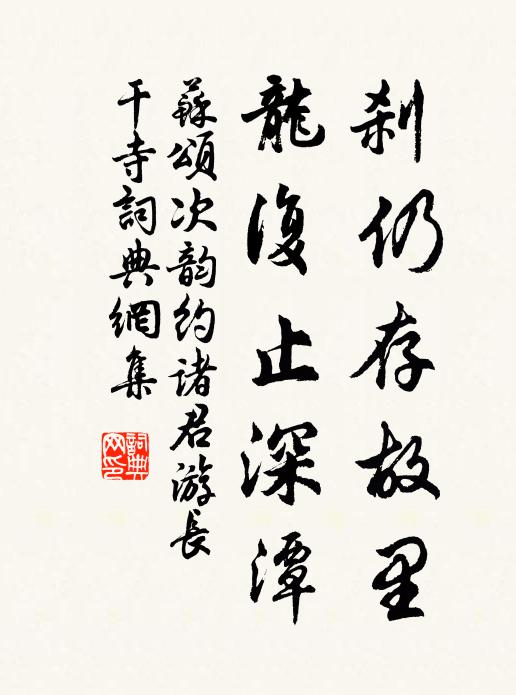 刹仍存故里
龍復止深潭
蘇頌次韵約諸君游長
干寺詞典網集
詞典網印